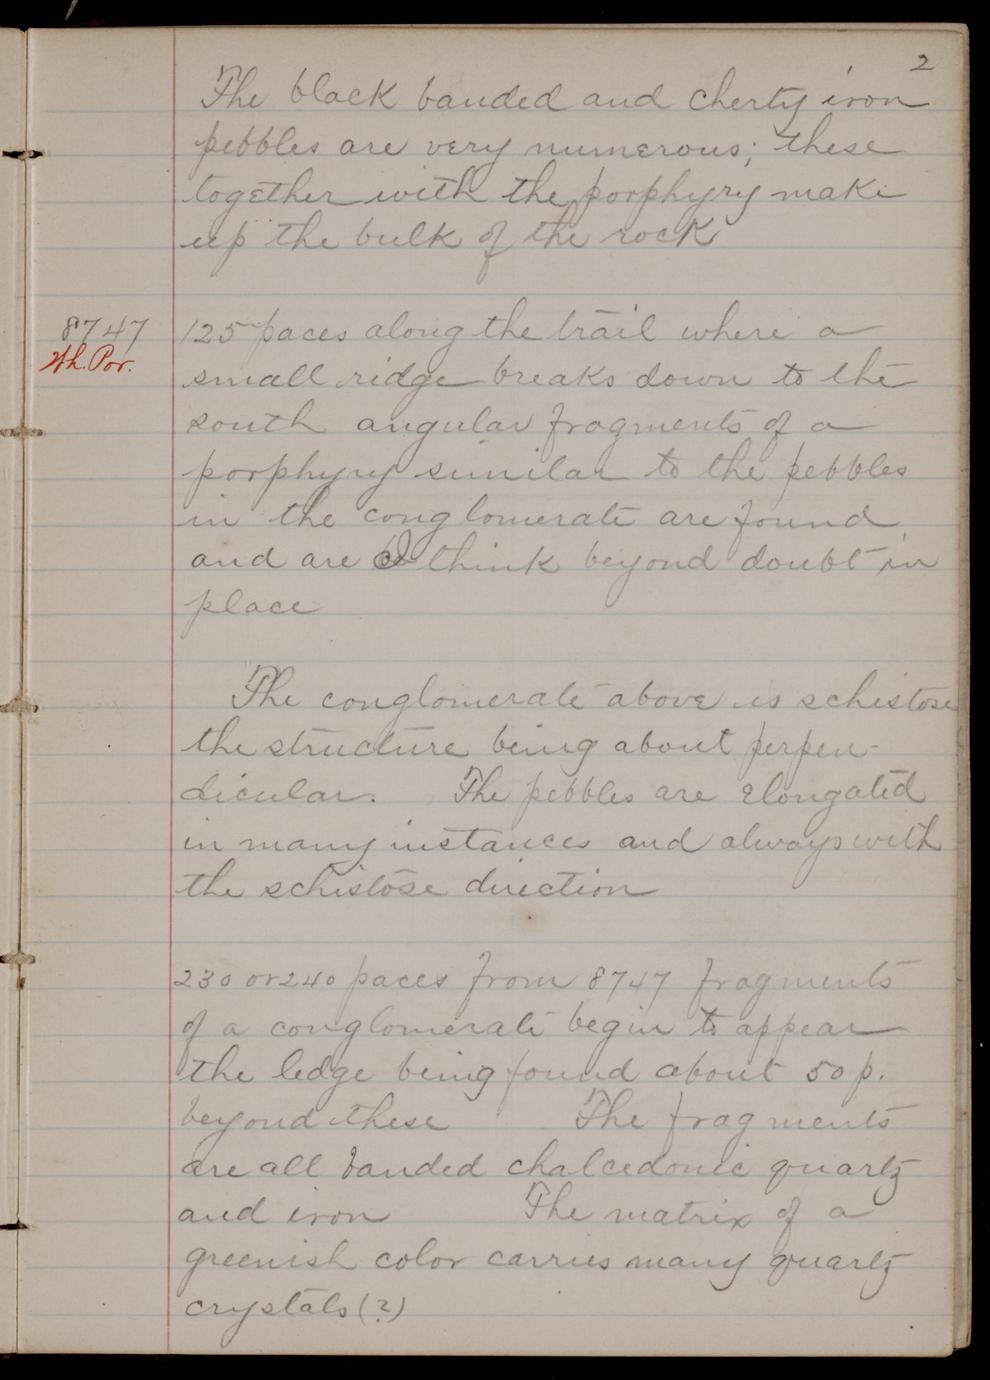 2
The black banded and cherty iron
pebbles are very numerous; these
together with the porphyry make
up the bulk of the rock
8747
125 paces along the trail where a
Por.
small ridge breaks down to the
south angular fragments of a
porphyry similar to the pebbles
in the conglomerate are found
and are I think beyond doubt in
place
The conglomerate above is schistose
the structure being about perpen-
dicular. The pebbles are elongated
in many instances and always with
the schistose direction
230 or 240 paces from 8747 fragments
of a conglomerate begin to appear
the ledge being found about 50 p.
beyond these The fragments
are all banded chalcedonic quartz
and iron The matrix of a
greenish color carries many quartz
crystals (?)